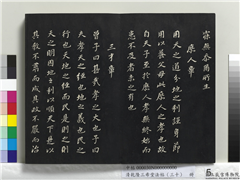 寐無忝爾所生
庶人章
用天之道分地之利謹身節
用以養父母此庶人之孝也故
自天子至於庶人孝無終始而
患不及者未之有也
三才章
曾子曰甚哉孝之大也子曰
夫孝天之經也地之義也民之
行也天地之經而民是則之則
天之明因地之利以順天下是以
其教不肅而成其政不嚴而治
清乾隆三希堂法帖(三十) 冊
故宮博物院